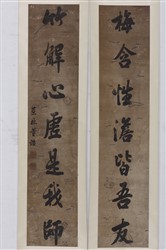 梅含性澹皆吾友
竹解心虛是我師